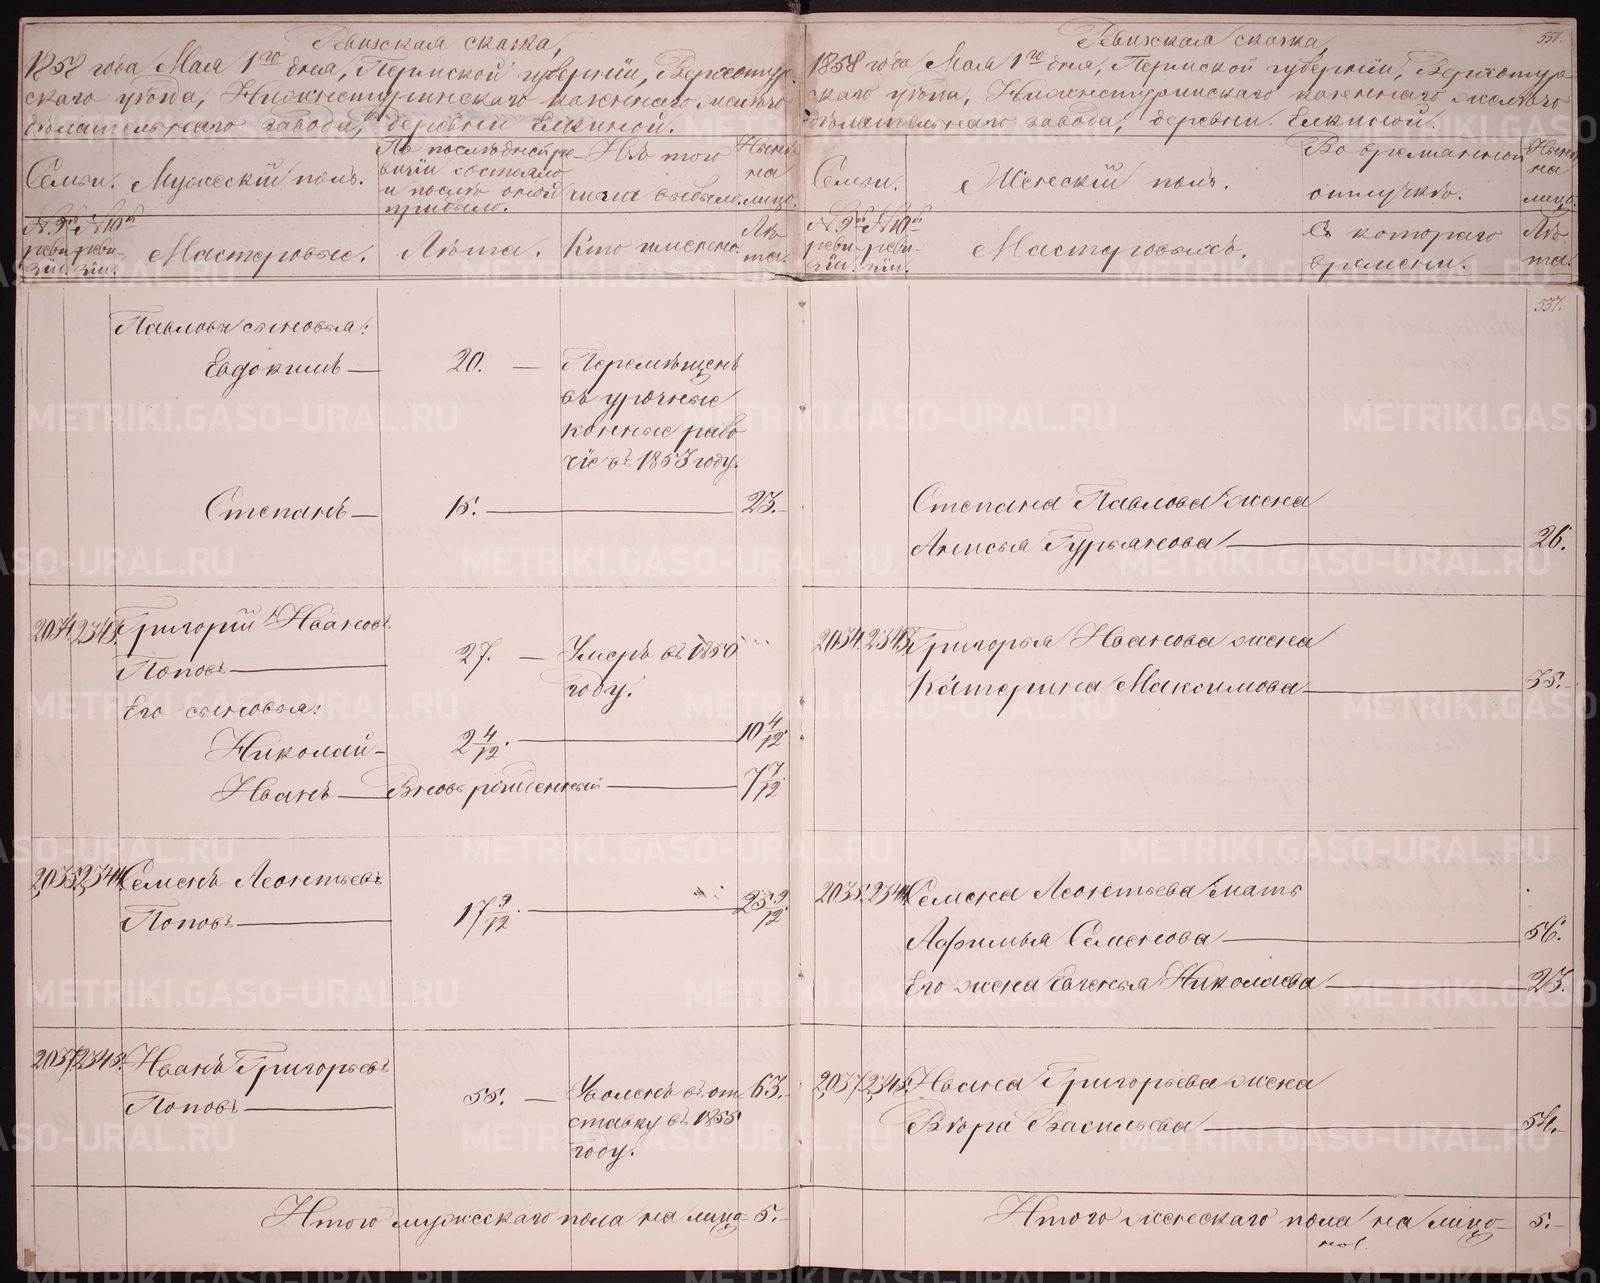 Ревизская сказка,
1858 года Мая 1го дня, Пермской губернии, Верхотур-
скаго уезда, Нижнетуринскаго казеннаго железо-
делательнаго завода, деревни Елкиной.
Семьи.
Мужеский пол.
По последней ре-
визии состояло
и после оной
прибыло.
Из того
числа выбыло.
Ныне
на
лицо.
№ 9й
реви-
зии.
№ 10й
реви-
зии.
Мастеровые.
Лета.
Кто именно.
Ле-
та.
Павловы сыновья:
Евдоким —
20. —
Перемещен
в урочные
конные рабо
чие в 1853 году.
Степан —
15. —
23.
2034.
2343.
Григорий Иванов
Попов —
27. —
Умер в 1850
году.
Его сыновья:
Николай —
2 4/12. —
10 4/12.
Иван — Вновь рожденный —
7 7/12.
2035.
2344.
Семен Леонтьев
Попов —
17 9/12. —
25 9/12.
2037.
2345.
Иван Григорьев
Попов —
55. —
Уволен в от
ставку в 1855
году.
63.
Итого мужескаго пола на лицо — 5. —
551.
Ревизская сказка,
1858 года Мая 1го дня, Пермской губернии, Верхотур-
скаго уезда, Нижнетуринскаго казеннаго железо-
делательнаго завода, деревни Елкиной.
Семьи.
Женский пол.
Во временной
отлучке.
Ныне
на
лицо.
№ 9й
реви-
зии.
№ 10й
реви-
зии.
Мастеровых.
С котораго
времени.
Ле-
та.
557.
Степана Павлова жена
Анисья Гурьянова —
26.
2034.
2343.
Григорья Иванова жена
Катерина Максимова —
35. —
2035.
2344.
Семена Леонтьева мать
Афимья Семенова —
56.
Его жена Евгенья Николаева —
23.
2037.
2345.
Ивана Григорьева жена
Вера Васильева —
54. —
Итого женскаго пола на лицо — 5. —
METRIKI.GASO-URAL.RU